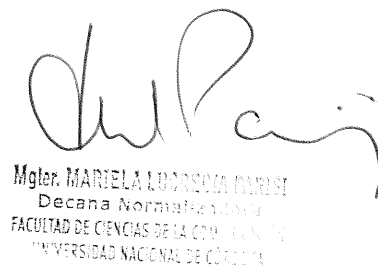 Mgter. MARIELA LUCRECIA PARISI
Decana Normalizadora
FACULTAD DE CIENCIAS DE LA
UNIVERSIDAD NACIONAL DE CÓRDOBA